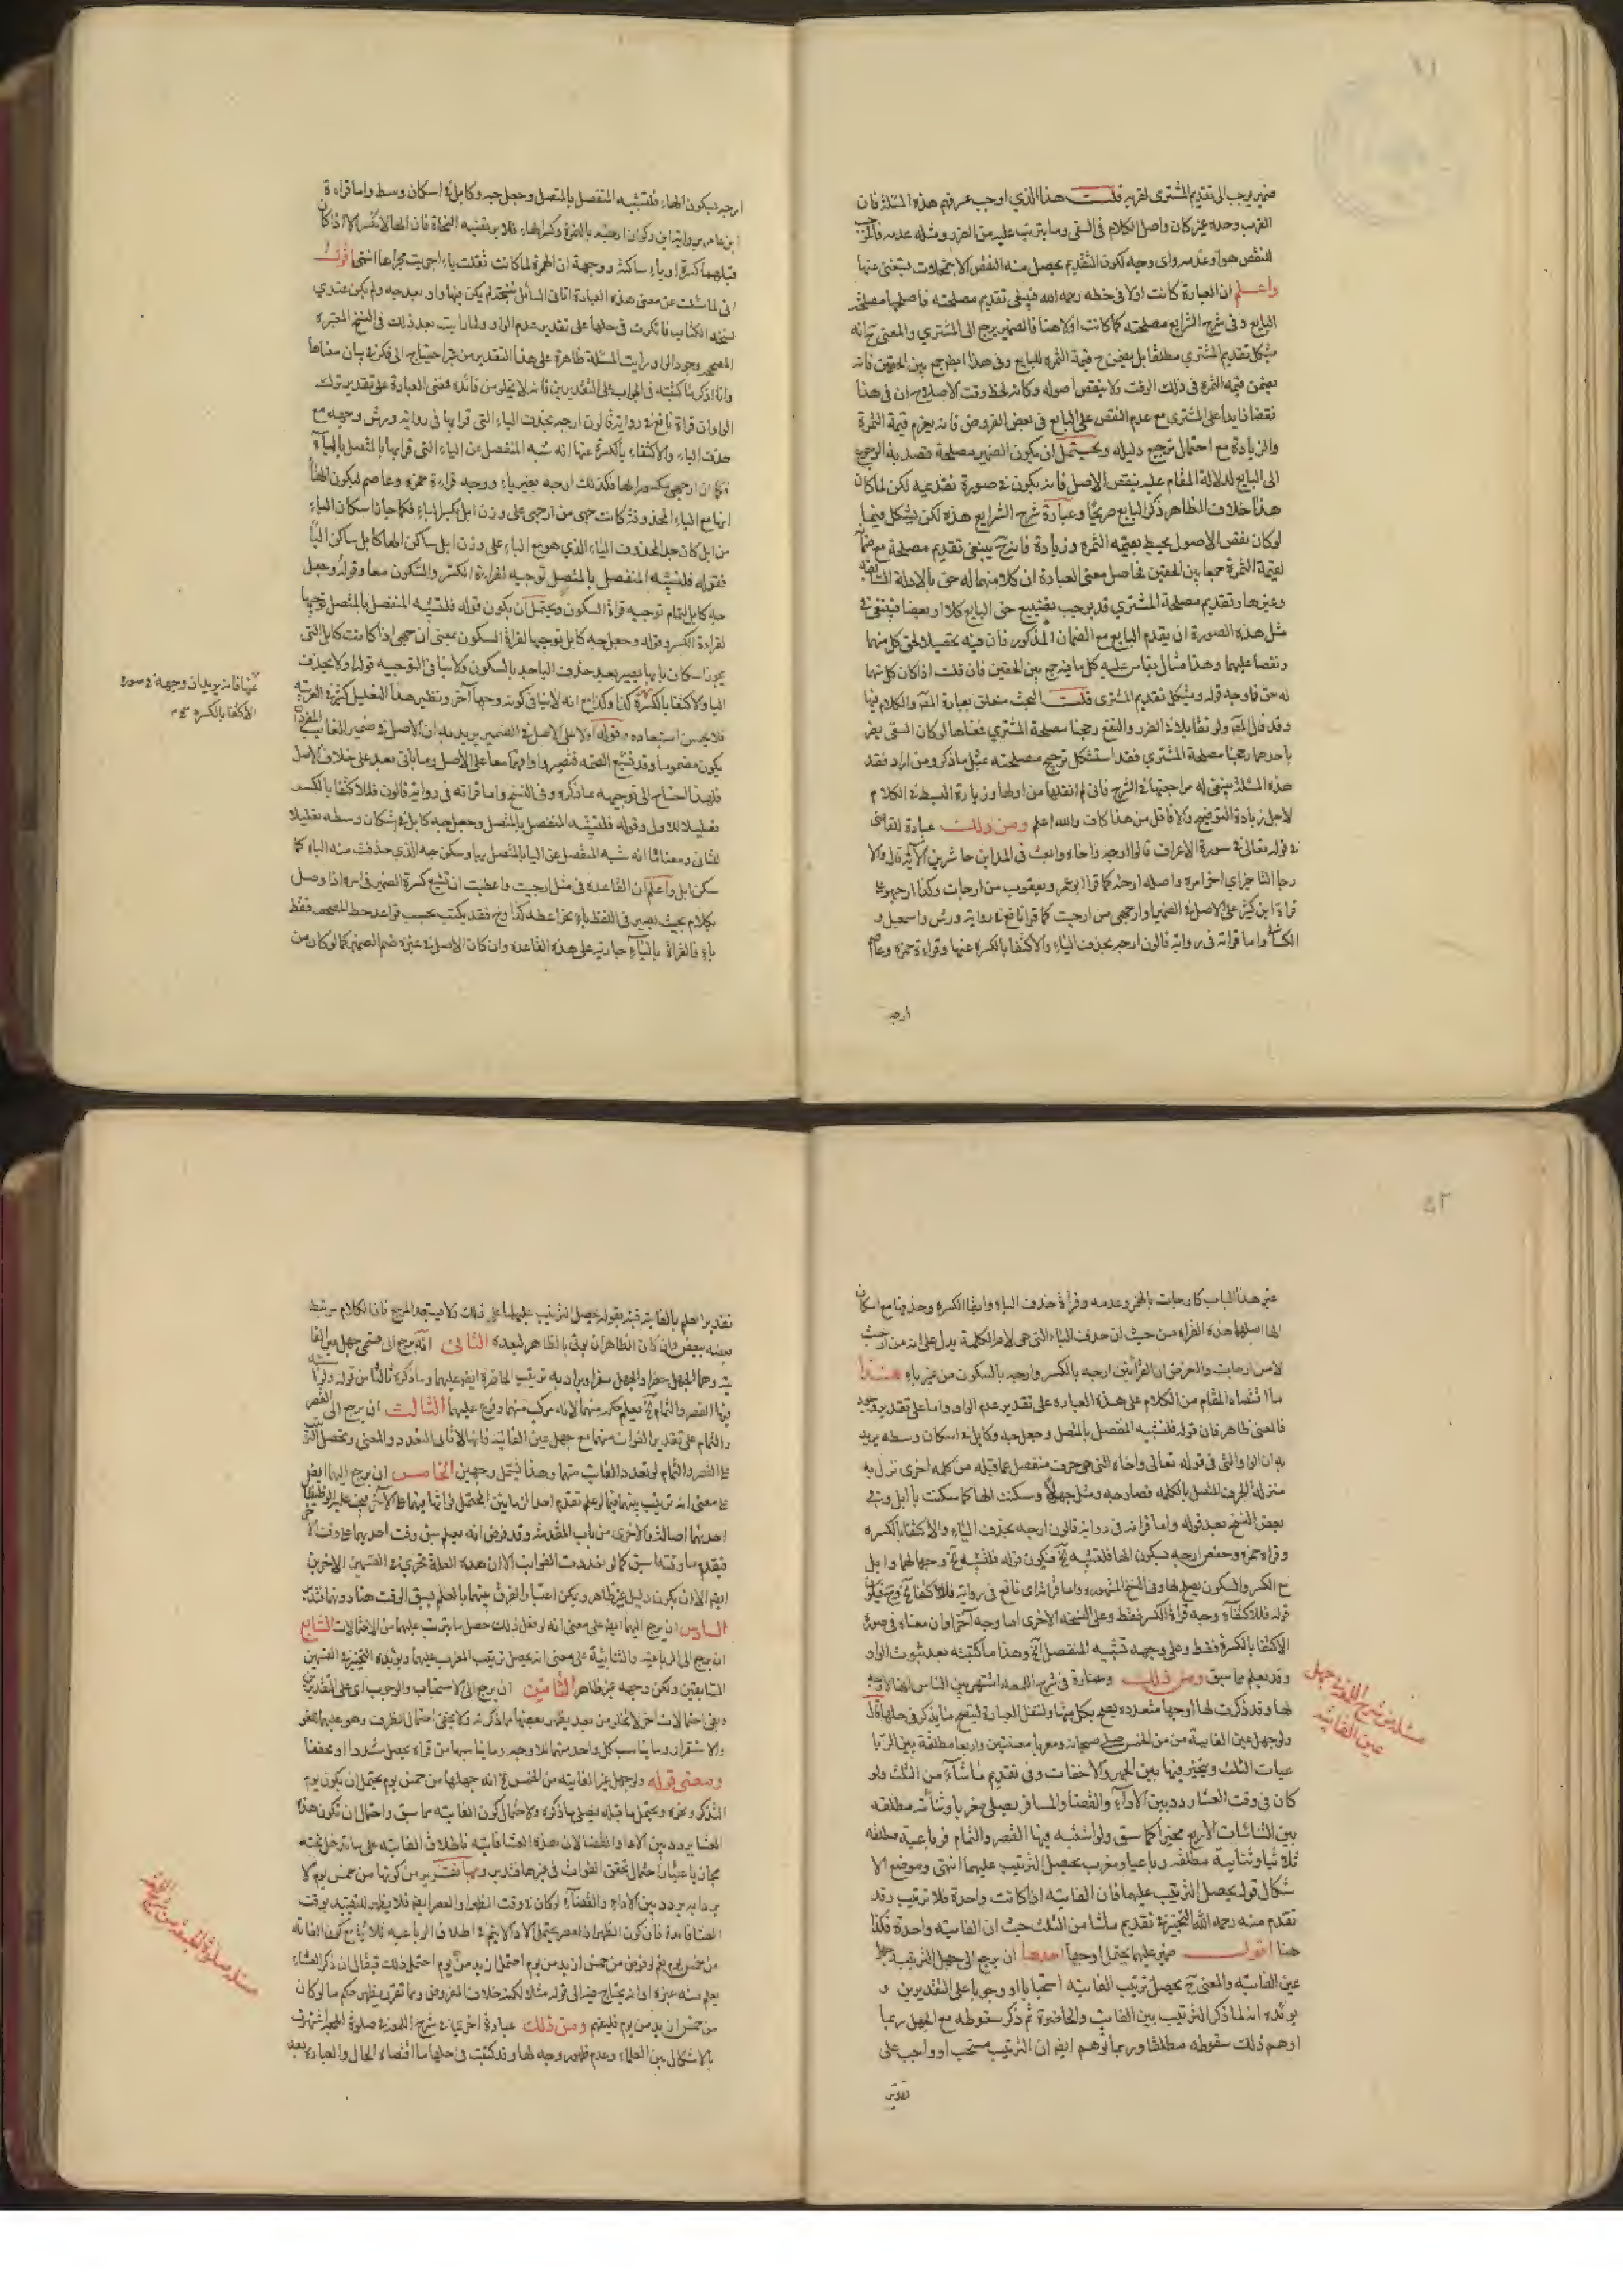 ضمير يرجب الى تقديم المشترى لقربه قلت هذا الذي اوجب عسر فهم هذه المسئلة فان
القرب وحده غير كان واصل الكلام في السقى وما يترتب عليه من الضرر ومثله عدمه فالموجب
للنقص هو او عدمه واى وجه لكون التقديم يحصل منه النقص الا بتمحلات يستغنى عنها
واعلم ان العبارة كانت اولا فى خطه رحمه الله فينبغى تقديم مصلحته فاصلحها مصلحة
البايع وفى شرح الشرايع مصلحته كما كانت اولا هنا فالضمير يرجع الى المشتري والمعنى ح انه
يشكل تقديم المشتري مطلقا بل يضمن ح قيمة الثمره للبايع وفى هذا ايضا جمع بين الحقين فانه
يضمن قيمه الثمره فى ذلك الوقت ولا ينقص اصوله وكانه لحظ وقت الاصلاح ان فى هذا
نقصانا بداعلى المشترى مع عدم النقص على البايع فى بعض الفروض فانه يغرم قيمة الثمرة
والزيادة مع احتمال ترجيح دليله ويحتمل ان يكون الضمير مصلحة قصد به الرجوع
الى البايع لدلالة المقام عليه بنقص الاصل فانه يكون فى صورة تقديمه لكن لما كان
هذا خلاف الظاهر ذكر البايع صريحا وعبارة شرح الشرايع هذه لكن يشكل فيما
لو كان نقص الاصول يحيط بقيمه الثمره وزيادة فانه ح ينبغى تقديم مصلحة مع ضمان
لقيمة الثمرة جمعا بين الحقين فحاصل معنى العبارة ان كلا منهما له حق بالادلة السابقه
وغيرها وتقديم مصلحة المشتري قد يوجب تضييع حق البايع كلا او بعضا فينبغى فى
مثل هذه الصورة ان يقدم البايع مع الضمان المذكور فان فيه تحصيلا لحق كل منهما
ونقصا عليهما وهذا مثال يقاس عليه كل ما فيه جمع بين الحقين فان قلت اذا كان كل منهما
له حق فما وجه قوله ويشكل تقديم المشترى قلت البحث متعلق بعبارة المص والكلام فيها
وقد قال المص ولو تقابلا فى الضرر والنفع رجحنا مصلحة المشتري فمعناها لو كان السقى يضر
باحدهما رجحنا مصلحة المشتري فقد استشكل ترجيح مصلحته بمثل ما ذكر ومن اراد فقد
هذه المسئلة فينبغى له مراجعتها فى الشرح فانى لم انقلها من اولها وزيادة البسط فى الكلام
لاجل زيادة التوضيح والا فاقل من هذا كاف والله اعلم ومن ذلك عبارة للقاضى
فى قوله تعالى فى سورة الاعراف قالوا ارجه واخاه وابعث فى المداين حاشرين الآية قال والا
رجا التاخير اى اخر امره واصله ارجئه كما قرا ابو عمرو ويعقوب من ارجات وكذا ارجهو على
قراة ابن كثير على الاصل فى الضمير او ارجهى من ارجيت كما قرا نافع فى رواية ورش واسمعيل و
الكسائى واما قراته فى رواية قالون ارجه بحذف الياء والاكتفا بالكسره عنها وقراءة حمزه وعاصم
ارجه
ارجه بسكون الهاء فلتشبيه المنفصل بالمتصل وجعل جه وكابل فى اسكان وسط واما قراءة
ابن عامر برواية ابن ذكوان ارجئه بالهمزة وكسر الهاء فلا يرتضيه النحاة فان الها لا تكسر الا اذا كان
قبلها كسرة او ياء ساكنة ووجهه ان الهمزة لما كانت تقلب ياء اجريت مجراها انتهى اقول
انى لما سئلت عن معنى هذه العبارة اتانى السائل بنسخة لم يكن فيها واو بعد جه ولم يكن عندي
نسخه الكتاب فافكرت فى حلها على تقدير عدم الواو ولما رايت بعد ذلك فى النسخ المعتبره
المصححه وجود الواو رايت المسئلة ظاهرة على هذا التقدير من غير احتياج الى فكر فى بيان معناها
وانا اذكر ما كتبته فى الجواب على التقديرين فانه لا يخلو من فائده فمعنى العبارة على تقدير ترك
الواو ان قراة نافع فى رواية قالون ارجه بحذف الياء التى قرا بها فى رواية ورش وجهه مع
حذف الياء والاكتفاء بالكسرة عنها انه شبه المنفصل عن الياء التى قرا بها بالمتصل بالياء
فكما ان ارجهى بكسر الها فكذلك ارجه بغير ياء ووجه قراءة حمزه وعاصم بسكون الهاء
انها مع الياء المحذوفة كانت جهى من ارجهى على وزن ابل بكسر الباء فكما جاز اسكان الباء
من ابل كان جه المحذوف الياء الذي هو مع الياء على وزن ابل ساكن الها كابل ساكن الباء
فقوله فلتشبيه المنفصل بالمتصل توجيه لقراءة الكسر والسكون معا وقوله وجعل
جه كابل تمام توجيه قراة السكون ويحتمل ان يكون قوله فلتشبيه المنفصل بالمتصل توجيها
لقراءة الكسر وقوله وجعل جه كابل توجيها لقراة السكون بمعنى ان جهى اذا كانت كابل التى
يجوز اسكان بابها يصير بعد حذف الياء جه بالسكون ولا ينافى التوجيه قوله اولا بحذف
اليا والاكتفا بالكسرة كذا وكذا مع انه لا ينافى كونه وجها آخر ونظير هذا التعليل كثير فى العربيه
فلا يحسن استبعاده وقوله اولا على الاصل فى الضمير يريد به ان الاصل فى ضمير الغائب المفرد ان
يكون مضموما وقد تشبع الضمه فتصير واوا فهما معا على الاصل وما ياتى بعد على خلاف الاصل
فلهذا احتاج الى توجيهه بما ذكره وفى النسخ واما قراته فى رواية قالون فللاكتفا بالكسر
تعليلا للاول وقوله فلتشبيه المنفصل بالمتصل وجعل جه كابل فى اسكان وسطه تعليلا
للثانى ومعناه انه شبه المنفصل عن اليا بالمتصل بيا وسكن جه الذي حذفت منه الياء كما
سكن ابل واعلم ان القاعده فى مثل ارجيت واعطيت ان تشبع كسرة الضمير فى امره اذا وصل
بكلام بحيث يصير فى اللفظ ياء نحو اعطه كذا وح فقد يكتب بحسب قواعد خط المصحف فقط
ياء فالقراة بالياء جارية على هذه القاعده وان كان الاصل فى غيره ضم الضمير كما لو كان من
عنها فانه يريد ان وجهه فى صورة
الاكتفا بالكسره
غير هذا الباب كارجات بالهمز وعدمه وقراة حذف الياء وابقا الكسره وحذفها مع اسكان
الها اصلها هذه القراه من حيث ان حذف الياء التى هى لام الكلمة يدل على انه من ارجيت
لا من ارجات والغرض ان القرائتين ارجه بالكسر وارجه بالسكون من غير ياء هذا
ما اقتضاه المقام من الكلام على هذه العباره على تقدير عدم الواو واما على تقدير وجوده
فالمعنى ظاهر فان قوله فلتشبيه المنفصل بالمتصل وجعل جه وكابل فى اسكان وسطه يريد
به ان الواو التى فى قوله تعالى واخاه التى هى حرف منفصل عما قبله من كلمه اخرى نزل به
منزلة الحرف المتصل بالكلمه فصار جه ومثل جهو وسكنت الها كما سكنت باابل وفى
بعض النسخ بعد قوله واما قراته فى رواية قالون ارجه بحذف الياء والاكتفا بالكسره
وقراه حمزه وحفص ارجه بسكون الها فلتشبيه الخ فيكون قوله فلتشبيه الخ وجها لهما وابل
مع الكسر والسكون يصلح لها وفى النسخ المشهوره واما قراة اى نافع فى رواية فللاكتفا الخ وح فيكون
قوله فللاكتفاء وجه قراة الكسر فقط وعلى النسخه الاخرى اما وجه آخر او ان معناه فى صورة
الاكتفا بالكسرة فقط وعلى وجهه تشبيه المنفصل الخ وهذا ما كتبته بعد ثبوت الواو
وقد يعلم مما سبق ومن ذلك وعبارة فى شرح اللمعه اشتهر بين الناس انها لا وجه
لها وقد ذكرت لها اوجها متعدده يصح بكل منها ولننقل العبارة ليتضح ما يذكر فى حلها قال
ولو جهل عين الفايتة من الخمس صلى صبحا ومغربا معينتين واربعا مطلقة بين الربا
عيات الثلث ويتخير فيها بين الجهر والاخفات وفى تقديم ما شاء من الثلث ولو
كان فى وقت العشا ردد بين الاداء والقضا والمسافر يصلى مغربا وثنائيه مطلقه
بين الثنائيات الاربع مخيرا كما سبق ولو اشتبه فيها القصر والتمام فرباعية مطلقه
ثلاثيا وثنايية مطلقه رباعيا ومغرب يحصل الترتيب عليهما انتهى وموضع الا
شكال قوله يحصل الترتيب عليهما فان الفايته اذا كانت واحدة فلا ترتيب وقد
تقدم منه رحمه الله التخيير فى تقديم ما شا من الثلث حيث ان الفايته واحدة فكذا
هنا اقول ضمير عليهما يحتمل اوجها احدها ان يرجع الى جهل الترتيب وجهل
عين الفايته والمعنى ح يحصل ترتيب الفايته استحبابا او وجوبا على التقديرين و
يوئده انه لما ذكر الترتيب بين الفايته والحاضرة ثم ذكر سقوطه مع الجهل ربما
اوهم ذلك سقوطه مطلقا وربما توهم ايضا ان الترتيب مستحب او واجب على
تقدير
مسئله من شرح اللمعه جهل
عين الفايته
تقدير العلم بالفايته فنبه بقوله يحصل الترتيب عليهما على ذلك ولا يستبعد المرجع فان الكلام مرتبط
بعضه ببعض وان كان الظاهر ان يوتى بالظاهر لبعده الثانى انه يرجع الى صلى جهل عين الفا
يته وهما الجهل حضرا والجهل سفرا ويراد به ترتيب الحاضرة ايضا عليهما وما ذكره ثالثا من قوله ولو اشتبه
فيها القصر والتمام الخ يعلم حكمه منهما لانه مركب منهما وفرع عليهما الثالث ان يرجع الى القصر
والتمام على تقدير الفوات منهما مع جهل عين الفايتة فانها لا تنافى التعدد والمعنى ويحصل الترتيب
على القصر والتمام لو تعدد الفايت منهما وهذا يشمل وجهين الخامس ان يرجع اليهما ايض
السادس ان يرجع اليهما ايضا على معنى انه لو فعل ذلك حصل ما يترتب عليهما من الاحتمالات السابع
ان يرجع الى الرباعية والثنايية على معنى انه يحصل ترتيب المغرب عليهما ويوئيده التخيير فى القسمين
السابقين ولكن وجهه غير ظاهر الثامن ان يرجع الى الاستحباب والوجوب اى على التقديرين
ومعنى قوله ولو جهل عين الفايته من الخمس الخ انه جهلها من خمس يوم يحتمل ان يكون يوم
العشا يردد بين الادا والقضا لان هذه العشا فايته فاطلاق الفايته على ما تدخل تحته
يعلم منه غيره او انه يحتاج فيه الى قوله مثلا لكنه خلاف المفروض وما تقرر يظهر حكم ما لو كان
من خمس ازيد من يوم فليفهم ومن ذلك عبارة اخرى فى شرح اللمعة فى صلوة الجمعة اشتهرت
بالاشكال بين العلماء وعدم ظهور وجه لها وقد كتبت فى حلها ما اقتضاه الحال والعباره بعد